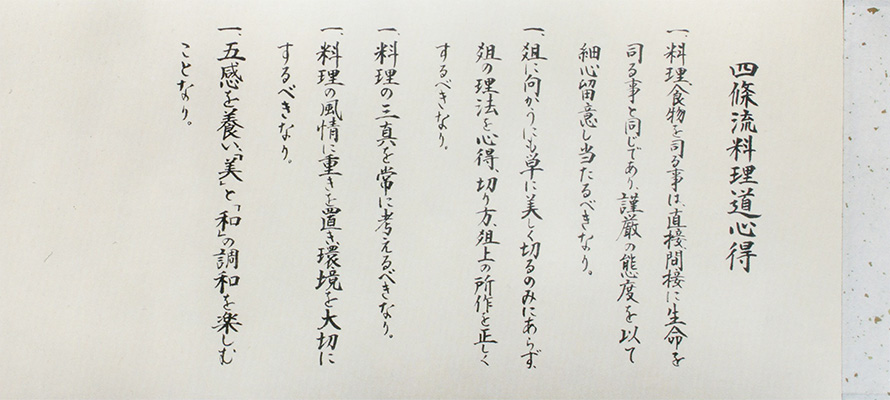 四條流料理道心得
一、料理食物を司る事は、直接間接に生命を
司る事と同じであり、謹厳の態度を以て
細心留意し当たるべきなり。
一、俎に向かうにも単に美しく切るのみにあらず、
俎の理法を心得、切り方、俎上の所作を正しく
するべきなり。
一、料理の三真を常に考えるべきなり。
一、料理の風情に重きを置き、環境を大切に
するべきなり。
一、五感を養い、「美」と「和」の調和を楽しむ
ことなり。